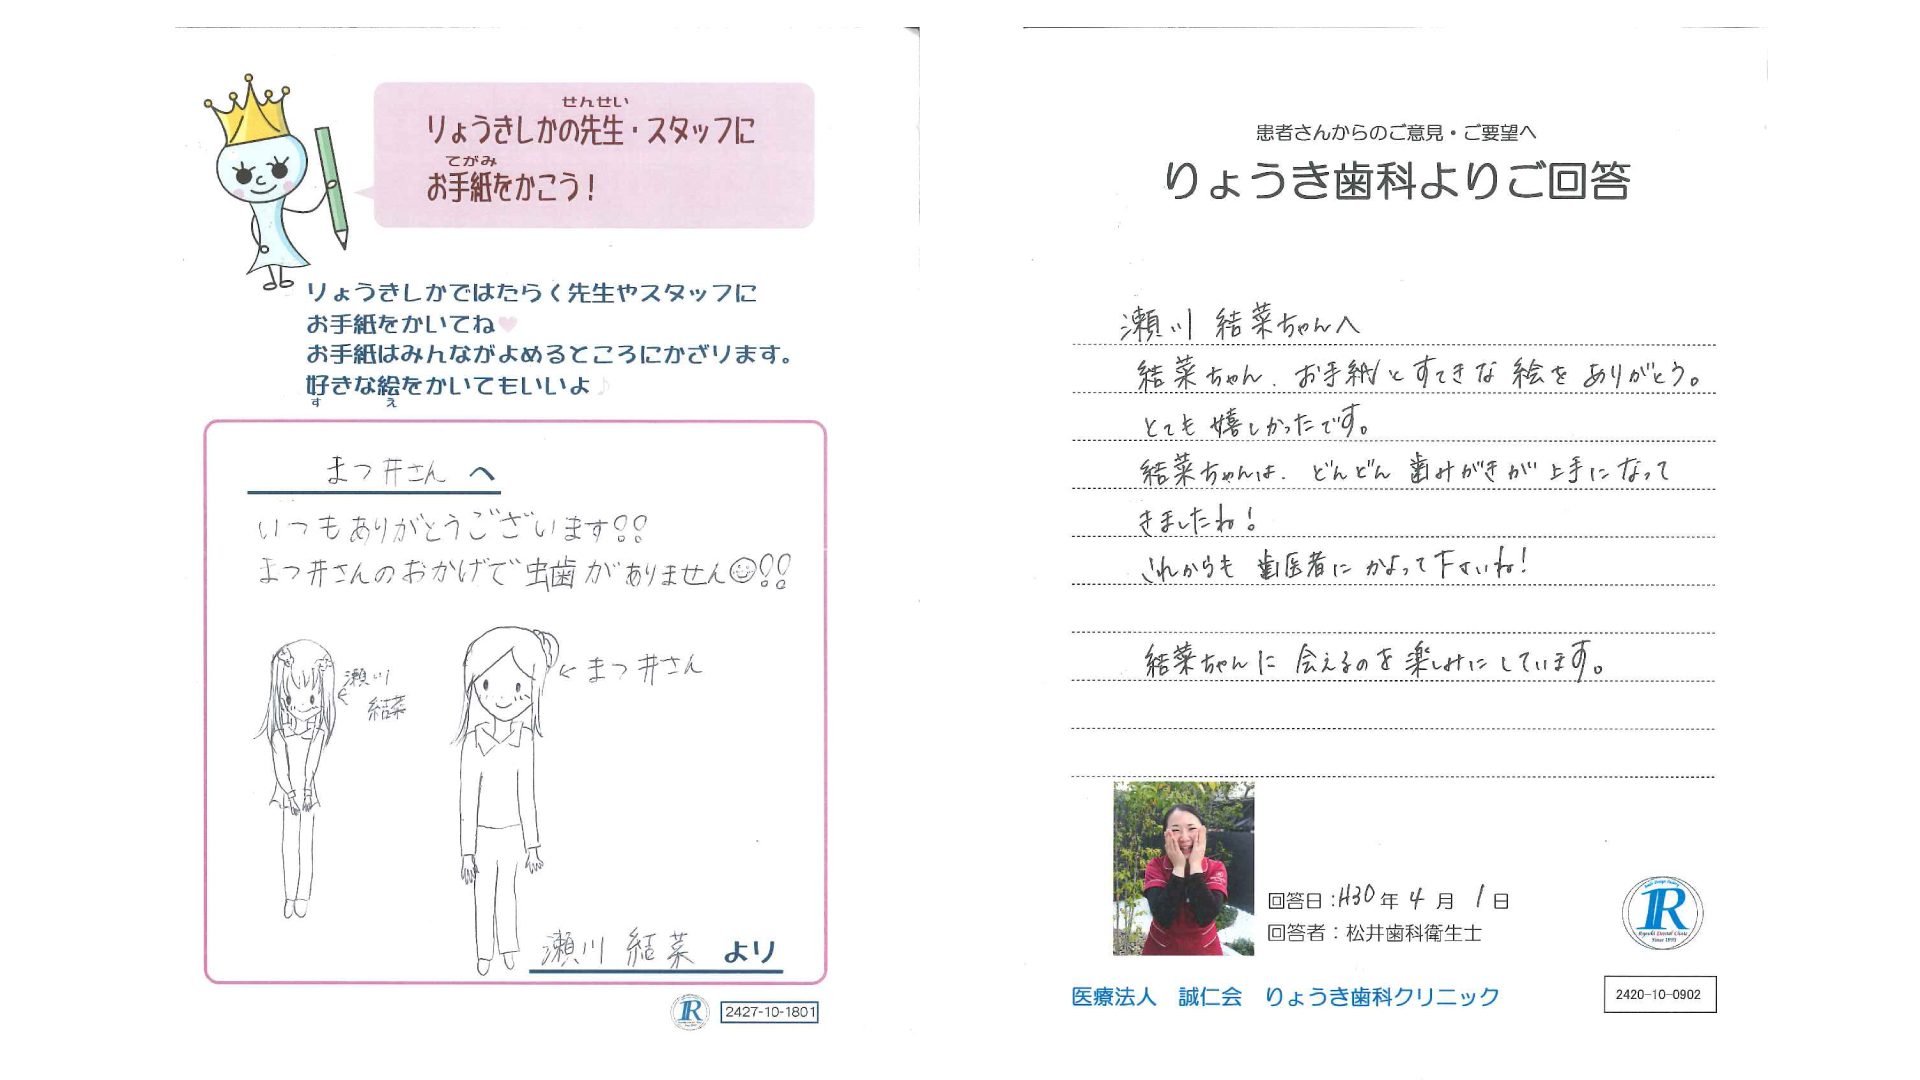 せんせい
りょうきしかの先生・スタッフに
てがみ
お手紙をかこう!
りょうきしかではたらく先生やスタッフに
お手紙をかいてね
お手紙はみんながよめるところにかざります。
好きな絵をかいてもいいよ♪
す え
まつ井さん へ
いつもありがとうございます!!
まつ井さんのおかげで虫歯がありません!!
瀬川
結菜
←まつ井さん
瀬川 結菜 より
2427-10-1801
患者さんからのご意見・ご要望へ
りょうき歯科よりご回答
瀬川 結菜ちゃんへ
結菜ちゃん、お手紙とすてきな絵をありがとう。
とても嬉しかったです。
結菜ちゃんは、どんどん歯みがきが上手になって
きましたね!
これからも歯医者にかよって下さいね!
結菜ちゃんに会えるのを楽しみにしています。
回答日:H30年4月1日
回答者:松井歯科衛生士
R
Ryouki Dental Clinic
Since 1993
医療法人 誠仁会 りょうき歯科クリニック
2420-10-0902